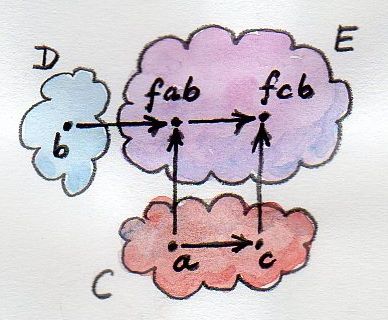 D
E
fab
fcb
b
a
c
C